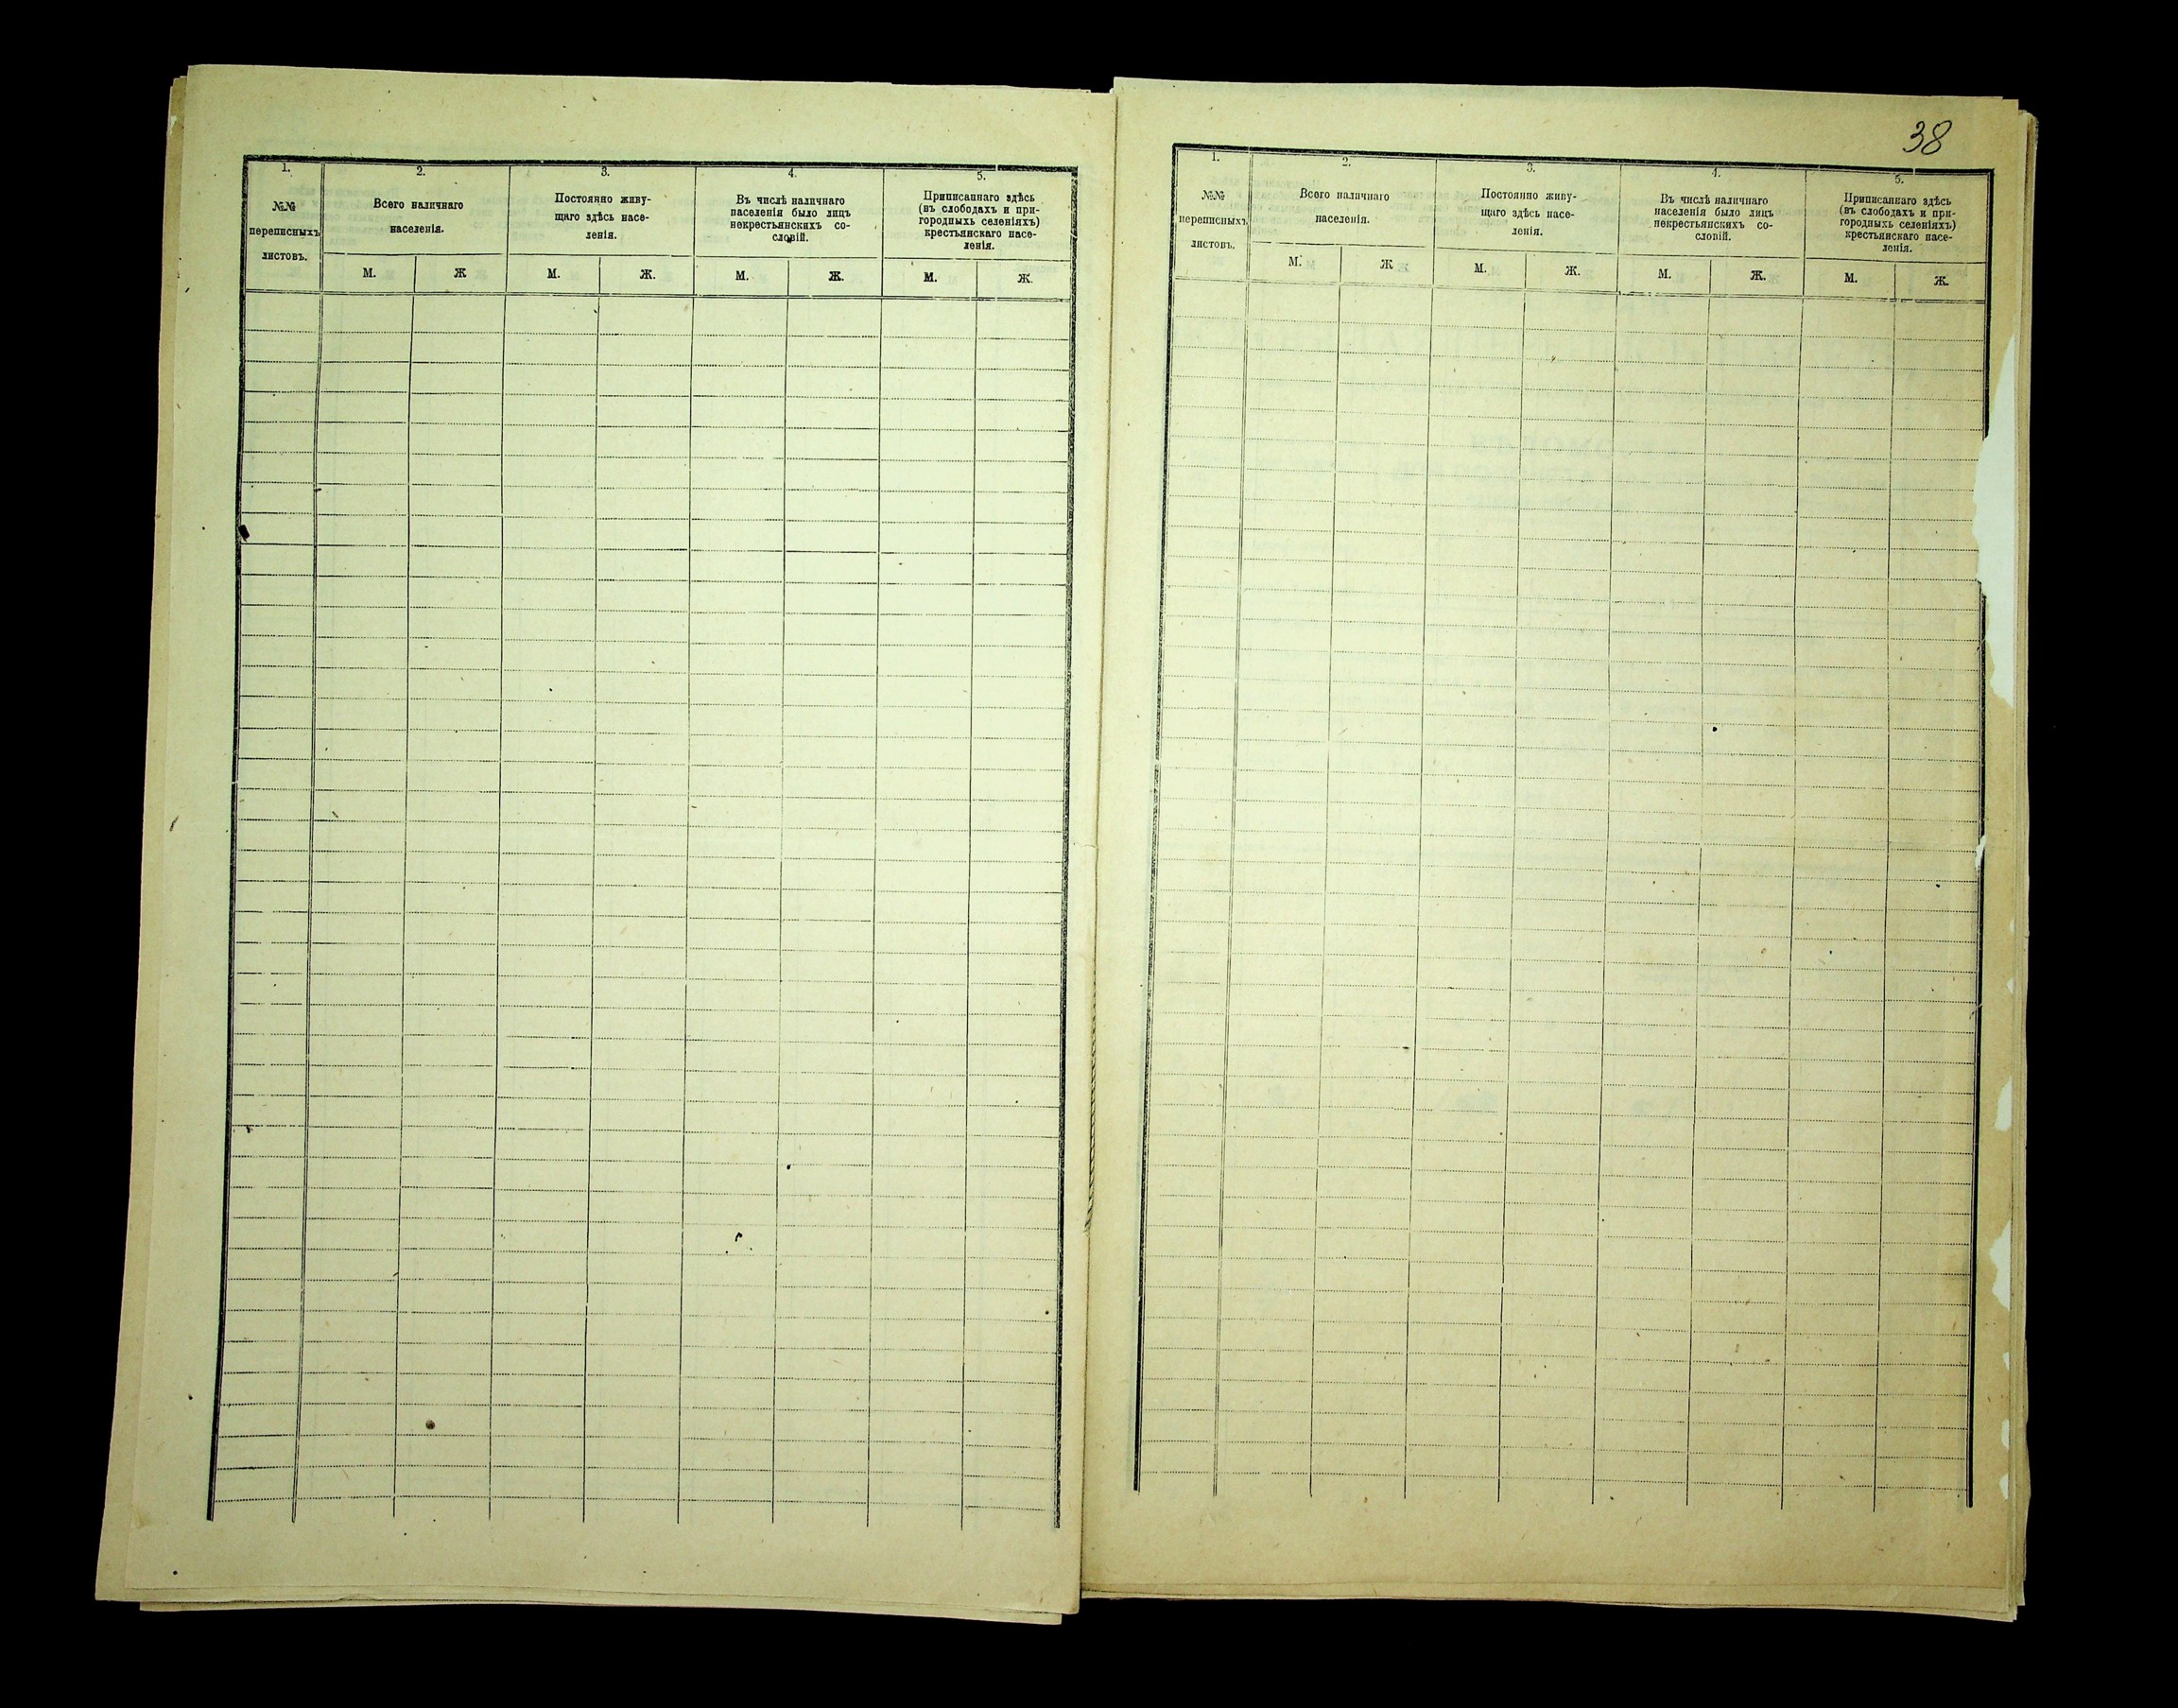 1.
№№
переписныхъ
листовъ.
2.
Всего наличнаго
населенія.
М.
Ж
3.
Постоянно живу-
щаго здѣсь насе-
ленія.
М.
Ж.
4.
Въ числѣ наличнаго
населенія было лицъ
некрестьянскихъ со-
словій.
М.
Ж.
5.
Приписаннаго здѣсь
(въ слободахъ и при-
городныхъ селеніяхъ)
крестьянскаго насе-
ленія.
М.
Ж.
38
1.
№№
переписныхъ
листовъ.
2.
Всего наличнаго
населенія.
М.
Ж
3.
Постоянно живу-
щаго здѣсь насе-
ленія.
М.
Ж.
4.
Въ числѣ наличнаго
населенія было лицъ
некрестьянскихъ со-
словій.
М.
Ж.
5.
Приписаннаго здѣсь
(въ слободахъ и при-
городныхъ селеніяхъ)
крестьянскаго насе-
ленія.
М.
Ж.